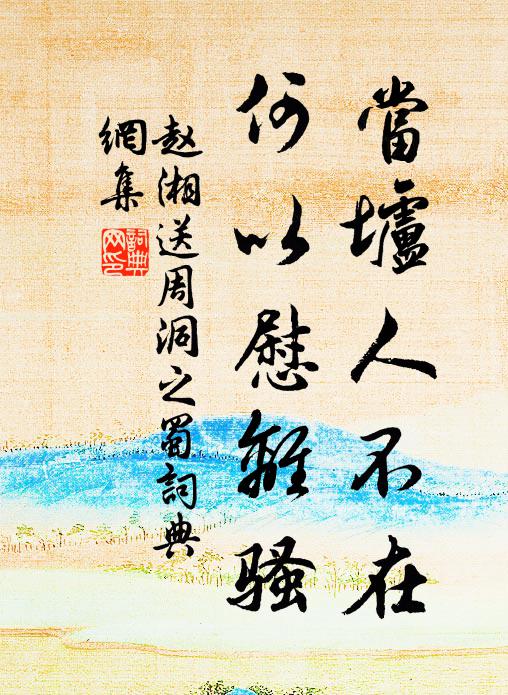 當壚人不在
何以慰離騷
赵湘送周洞之蜀詞典
網集
詞典
网印